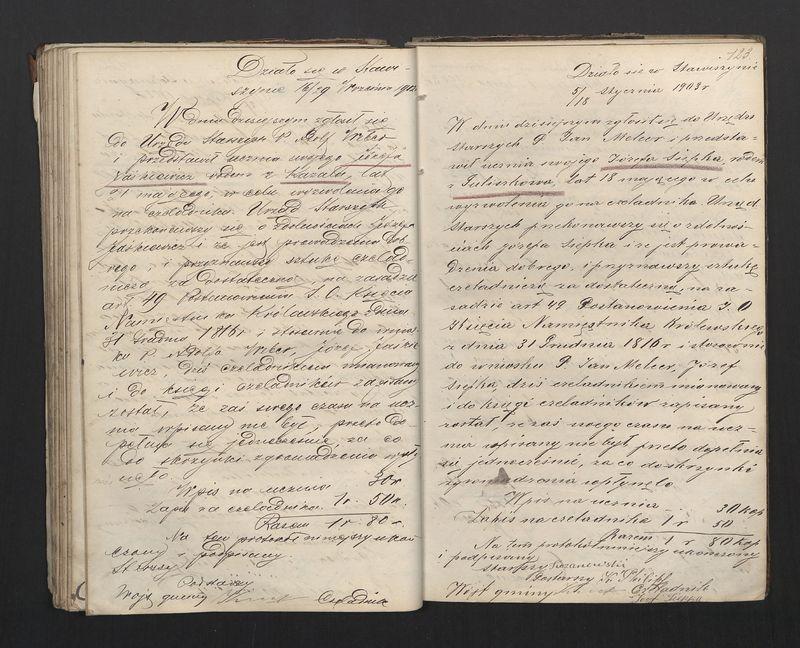 Działo się w Stawi-
szynie 16/29 Września 1902
W dniu dzisiejszym zgłosił się
do Urzędu Starszych P. Adolf Weber
i przedstawił ucznia swojego Józefa
rodem z Kazala, lat
21 mającego, w celu wyzwolenia go
na czeladnika. Urząd Starszych
przekonawszy się o zdolnościach Józefa
i że jest prowadzenia dob-
rego, i przyznawszy sztukę czelad-
niczą za dostateczną na zasadzie
art 49 Postanowienia J. O. Księcia
Namiestnika Królewskiego z dnia
31 Grudnia 1816 r i stosownie do wnios-
ku P. Adolfa Weber, Józef
dziś czeladnikiem mianowany
i do księgi czeladników zapisany
został, że zaś swego czasu na ucz-
nia wpisany nie był, przeto do-
pełnia się jednocześnie, za co
do skrzynki zgromadzenia wpły-
nęło.
Wpis na ucznia 30 k
Zapis na czeladnika 1 r. 50 k.
Razem 1 r. 80 k.
Na tem protokół niniejszy ukoń-
czony i podpisany
Starszy
Podstarszy
Wójt gminy Czeladnik
123.
Działo się w Stawiszynie
5/18 Stycznia 1903 r
W dniu dzisiejszym zgłosił się do Urzędu
Starszych P. Jan Melcer i przedsta-
wił ucznia swojego Józefa Siepka, rodem
z Tuliszkowa, lat 18 mającego w celu
wyzwolenia go na czeladnika. Urząd
Starszych przekonawszy się o zdolnoś-
ciach Józefa Siepka i że jest prowa-
dzenia dobrego, i przyznawszy sztukę
czeladniczą za dostateczną, na za-
sadzie art 49 Postanowienia J. O
Księcia Namiestnika Królewskiego
z dnia 31 Grudnia 1816 r i stosownie
do wniosku P. Jan Melcer, Józef
Siepka, dziś czeladnikiem mianowany
i do księgi czeladników zapisany
został że zaś swego czasu na ucz-
nia wpisany nie był przeto dopełnia
się jednocześnie, za co do skrzynki
zgromadzenia wpłynęło.
Wpis na ucznia 30 kop
Zapis na czeladnika 1 r 50
Razem 1 r 80 kop
Na tem protokół niniejszy ukończony
i podpisany
Starszy
Podstarszy
Wójt gminy Czeladnik
Józef Siepka